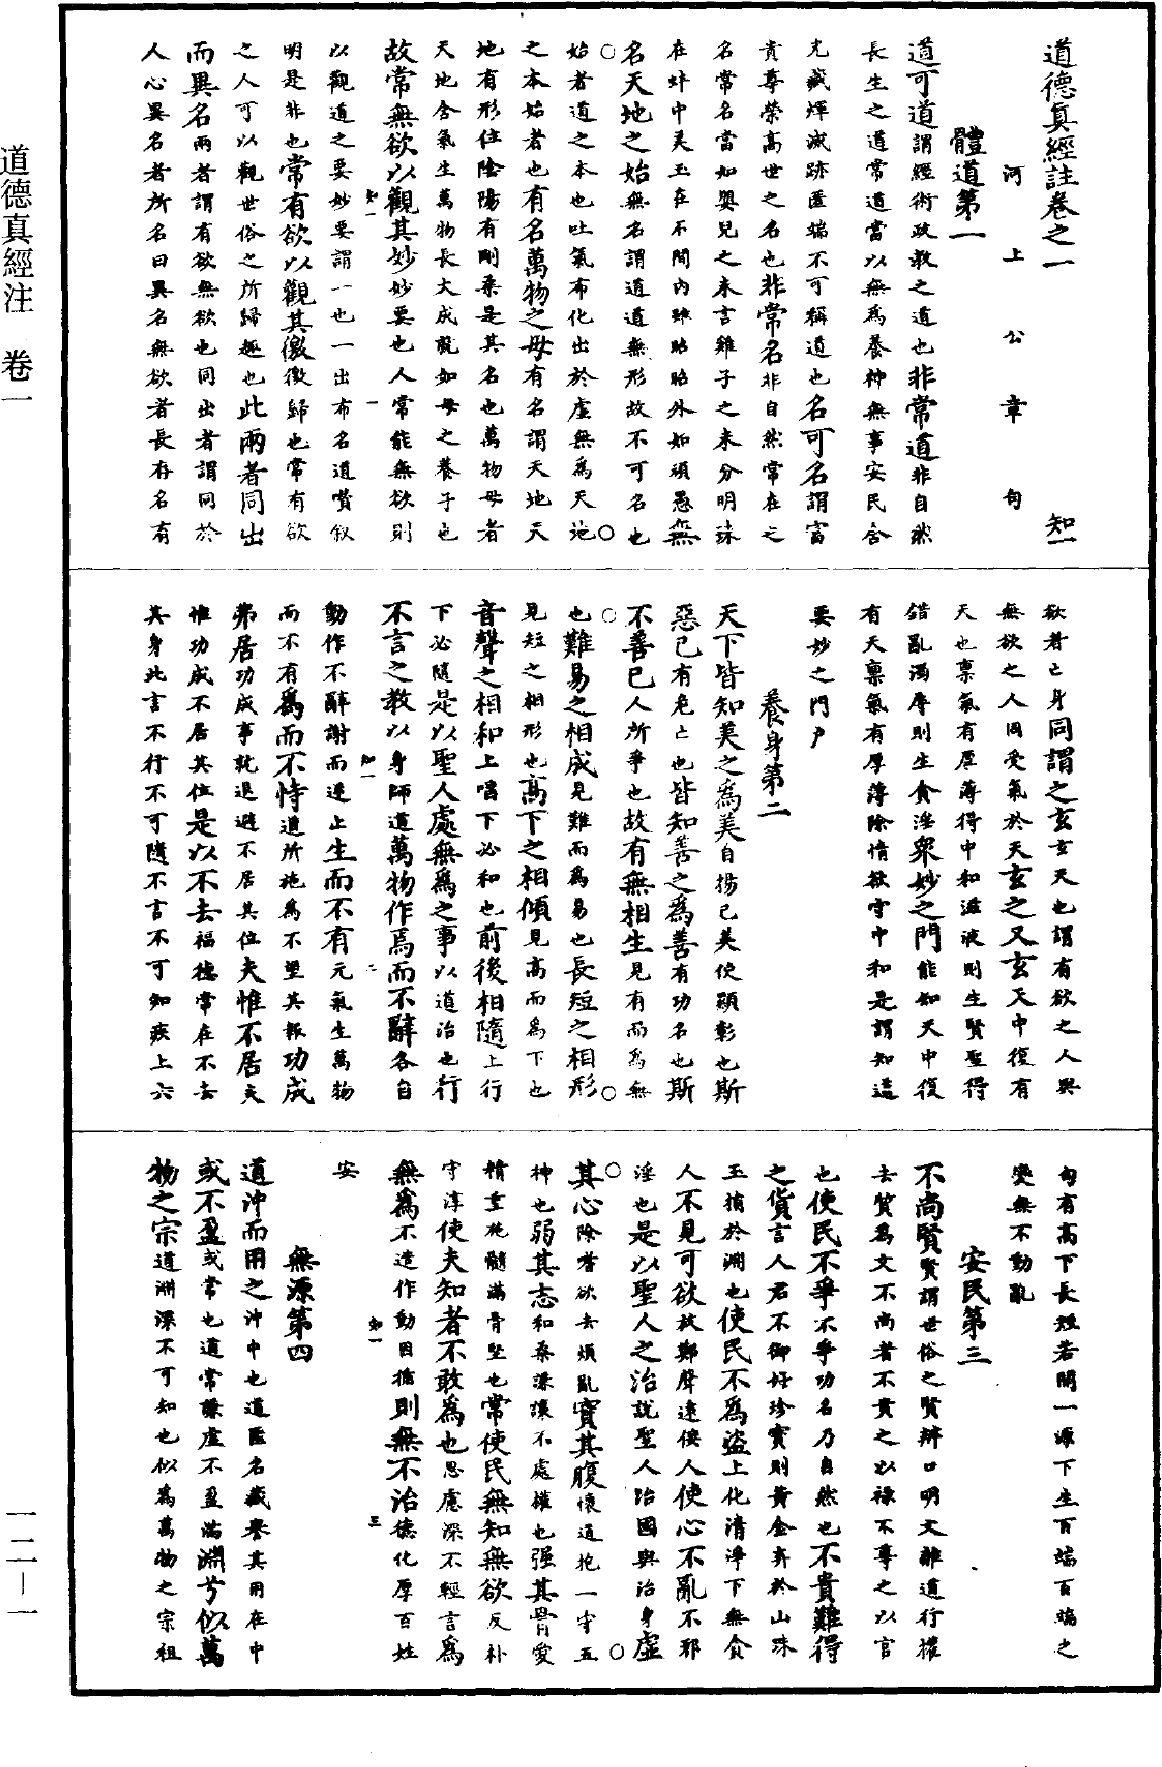 道德真經註卷之一　知一
河上公章句
體道第一
道可道謂經術政教之道也非常道非自然
長生之道常道當以無為養神無事安民含
光藏輝滅跡匿端不可稱道也名可名謂富
貴尊榮高世之名也非常名非自然常在之
名常名當如嬰兒之未言雞子之未分明珠
在蚌中美玉在石間內雖昭昭外如頑愚無
名天地之始無名謂道道無形故不可名也
始者道之本也吐氣布化出於虛無為天地
之本始者也有名萬物之母有名謂天地天
地有形位陰陽有剛柔是其名也萬物母者
天地含氣生萬物長大成熟如母之養子也
知一　一
故常無欲以觀其妙妙要也人常能無欲則
以觀道之要妙要謂一也一出布名道讚叙
明是非也常有欲以觀其徼徼歸也常有欲
之人可以觀世俗之所歸趣也此兩者同出
而異名兩者謂有欲無欲也同出者謂同於
人心異名者所名曰異名無欲者長存名有
欲者亡身同謂之玄玄天也謂有欲之人與
無欲之人同受氣於天玄之又玄天中復有
天也稟氣有厚薄得中和滋液則生賢聖得
錯亂濁辱則生貪淫眾妙之門能知天中復
有天稟氣有厚薄除情欲守中和是謂知道
要妙之門戶
養身第二
天下皆知美之為美自揚已美使顯彰也斯
惡已有危亡也皆知善之為善有功名也斯
不善已人所爭也故有無相生見有而為無
也難易之相成見難而為易也長短之相形
見短之相形也高下之相傾見高而為下也
音聲之相和上唱下必和也前後相隨上行
下必隨是以聖人處無為之事以道治也行
不言之教以身師道萬物作焉而不辭各自
知一　二
動作不辭謝而逆止生而不有元氣生萬物
而不有為而不恃道所施為不望其報功成
弗居功成事就退避不居其位夫惟不居夫
惟功成不居其位是以不去福德常在不去
其身此言不行不可隨不言不可知疾上六
句有高下長短若開一源下生百端百端之
變無不動亂
安民第三
不尚賢賢謂世俗之賢辯口明文離道行權
去質為文不尚者不貴之以祿不尊之以官
也使民不爭不爭功名乃自然也不貴難得
之貨言人君不御好珍寶則黃金弃於山珠
玉捐於淵也使民不為盜上化清淨下無貪
人不見可欲放鄭聲遠佞人使心不亂不邪
淫也是以聖人之治說聖人治國與治身虛
其心除嗜欲去煩亂實其腹懷道抱一守五
神也弱其志和柔謙讓不處權也强其骨愛
精重施髓滿骨堅也常使民無知無欲反朴
守淳使夫知者不敢為也思慮深不輕言為
無為不造作動因循則無不治德化厚百姓
知一　三
安
無源第四
道沖而用之沖中也道匿名藏譽其用在中
或不盈或常也道常謙虛不盈滿淵兮似萬
物之宗道淵深不可知也似為萬物之宗祖
道德真經注　卷一
一二—一